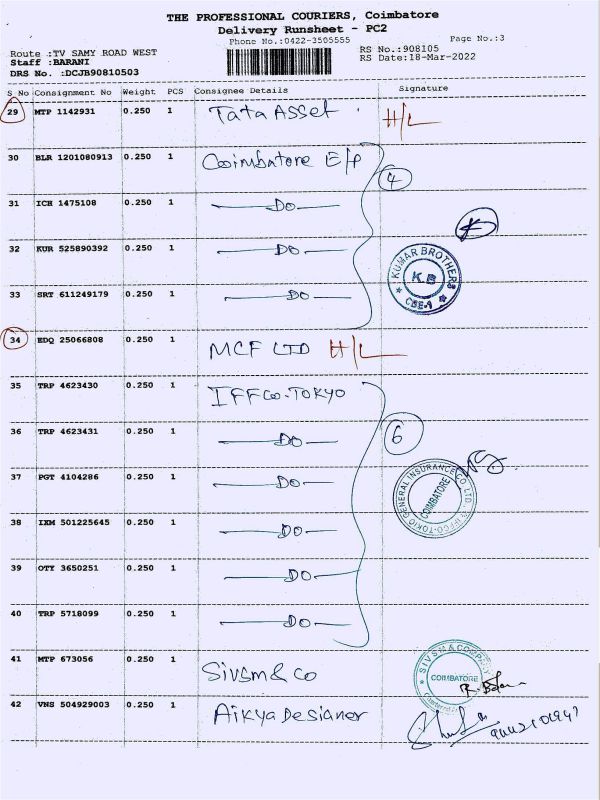 THE PROFESSIONAL COURIERS, Coimbatore
Delivery Runsheet - PC2
Phone No.:0422-3505555
Page No.:3
Route :TV SAMY ROAD WEST
RS No.:908105
Staff :BARANI
RS Date:18-Mar-2022
DRS No. :DCJB90810503
S_No Consignment No Weight PCS Consignee Details Signature
29 MTP 1142931 0.250 1 Tata Asset. H/L
30 BLR 1201080913 0.250 1 Coimbatore E/P
4
31 ICH 1475108 0.250 1 DO
32 KUR 525890392 0.250 1 DO
KUMAR BROTHERS
K.B
CBE-1
33 SRT 611249179 0.250 1 DO
34 EDQ 25066808 0.250 1 MCF LTD H/L
35 TRP 4623430 0.250 1 IFFCO-TOKYO
36 TRP 4623431 0.250 1 DO
6
37 PGT 4104286 0.250 1 DO
GENERAL INSURANCE CO. LTD.
IFFCO-TOKIO
COIMBATORE
38 IXM 501225645 0.250 1 DO
39 OTY 3650251 0.250 1 DO
40 TRP 5718099 0.250 1 DO
41 MTP 673056 0.250 1 Sivsm & Co
SIVSM & COMPANY
COIMBATORE
42 VNS 504929003 0.250 1 Aikya Desianer